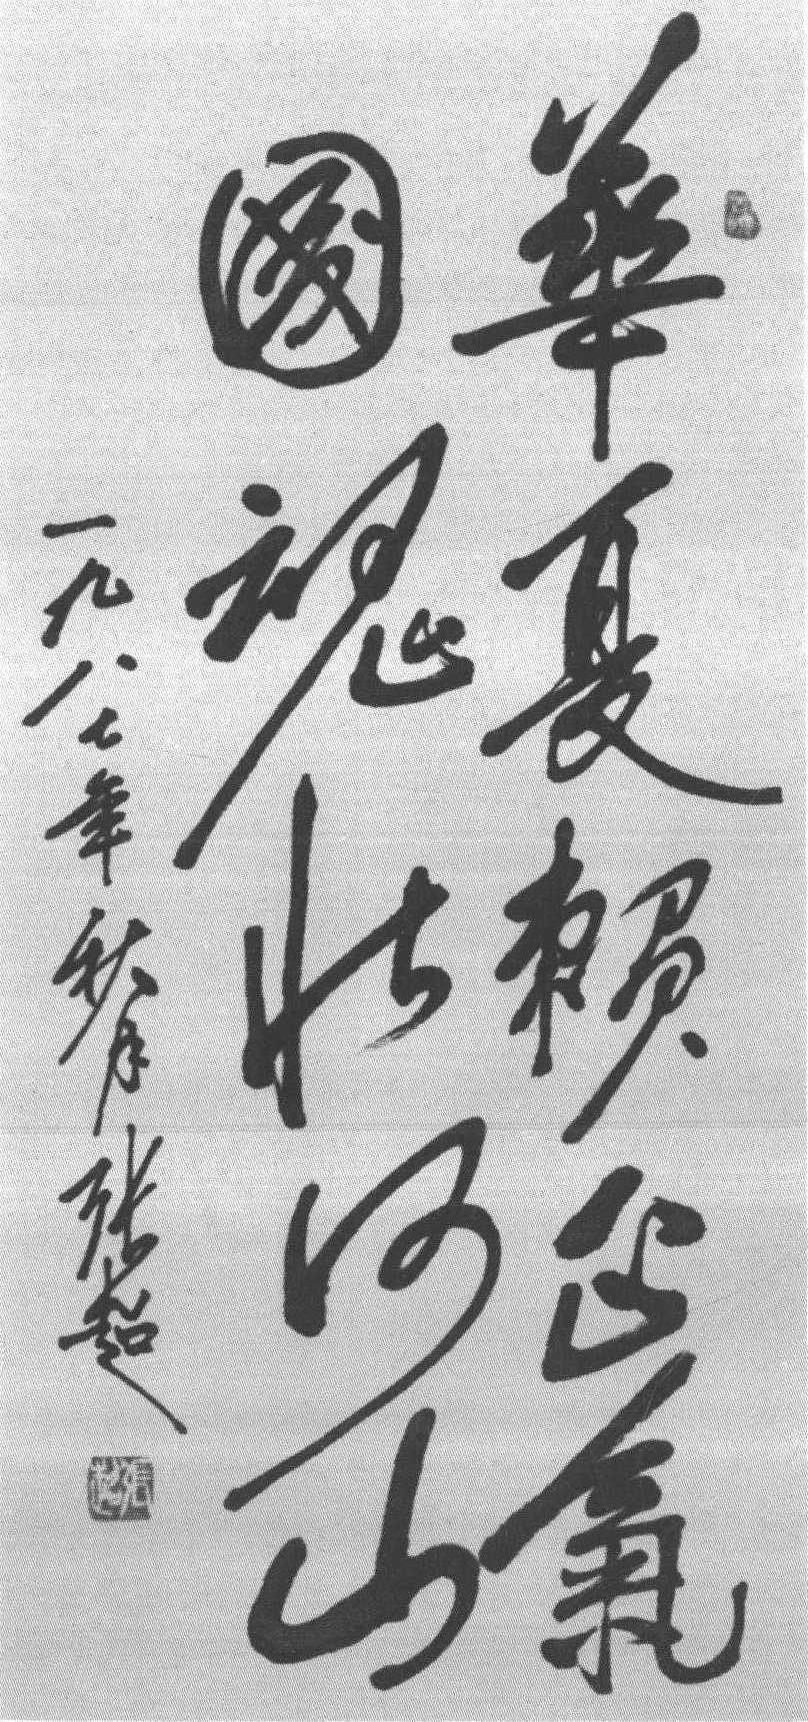 華夏賴正氣
國魂壯河山
一九八七年秋月張超
張超